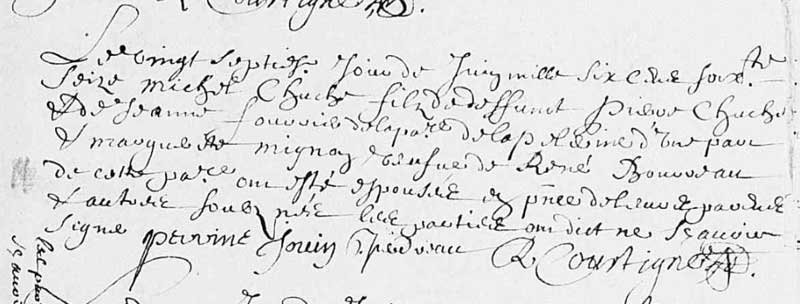 R Courtigne
Le vingt septiesme Jour de Juing mille six cens soixte
seize michel Chuche filz de deffunct pierre Chuche
& de Jeanne fournier de la par de la pelerine d'une part
& marguerite mignoy veufve de René Bouveau
de cette par ont esté espousée en pnce de leurs parens
& autres soubznés les parties ont dict ne scavoir
signe perrine Jouin R Courtigne